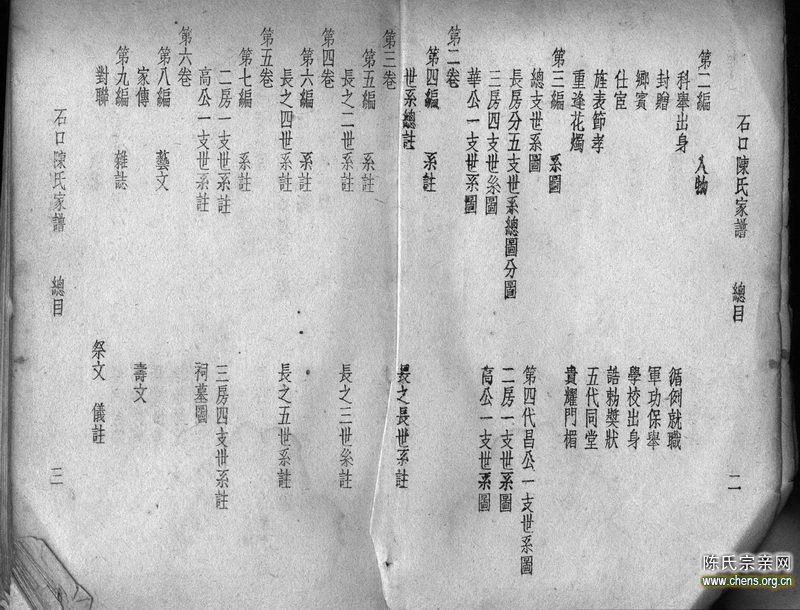 石口陳氏家譜 總目 二
第二編 人物
科舉出身 循例就職
封贈 軍功保舉
鄉賓 學校出身
仕宦 誥勅獎狀
旌表節孝 五代同堂
重逢花燭 貴耀門楣
第三編 系圖
總支世系圖
長房分五支世系總圖分圖 第四代昌公一支世系圖
三房四支世系圖 二房一支世系圖
華公一支世系圖 高公一支世系圖
第二卷
第四編 系註
世系總註 長之長世系註
第三卷
第五編 系註
長之二世系註 長之三世系註
第四卷
第六編 系註
長之四世系註 長之五世系註
第五卷
第七編 系註
二房一支世系註 三房四支世系註
高公一支世系註 祠墓圖
第六卷
第八編 藝文
家傳 壽文
第九編 雜誌
對聯 祭文 儀註
石口陳氏家譜 總目 三
陈氏宗亲网
www.chens.org.cn